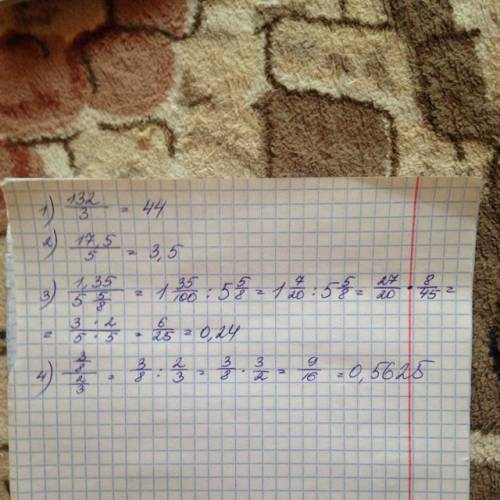 1) 132/3 = 44
2) 17,5/5 = 3,5
3) 1,35/5 5/8 = 1 35/100 : 5 5/8 = 1 7/20 : 5 5/8 = 27/20 · 8/45 =
= 3 · 2/5 · 5 = 6/25 = 0,24
4) 3/8/2/3 = 3/8 : 2/3 = 3/8 · 3/2 = 9/16 = 0,5625